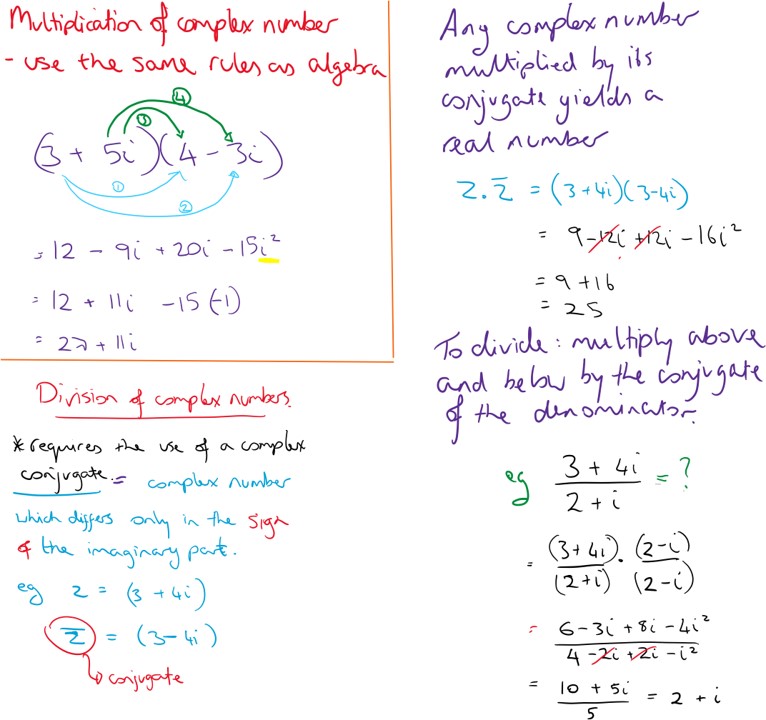 Multiplication of complex number
- use the same rules as algebra
④
③
(3 + 5i)(4 - 3i)
①
②
= 12 - 9i + 20i - 15i²
= 12 + 11i - 15(-1)
= 27 + 11i
Division of complex numbers.
* requires the use of a complex
conjugate. = complex number
which differs only in the sign
of the imaginary part.
eg z = (3 + 4i)
z̅ = (3-4i)
conjugate
Any complex number
multiplied by its
conjugate yields a
real number
z.z̅ = (3+4i)(3-4i)
= 9-12i +12i -16i²
= 9 +16
= 25
To divide: multiply above
and below by the conjugate
of the denominator.
eg (3 + 4i)/(2 + i) = ?
= (3+4i)/(2+i) . (2-i)/(2-i)
= (6-3i+8i-4i²)/(4-2i+2i-i²)
= (10 + 5i)/5 = 2 + i